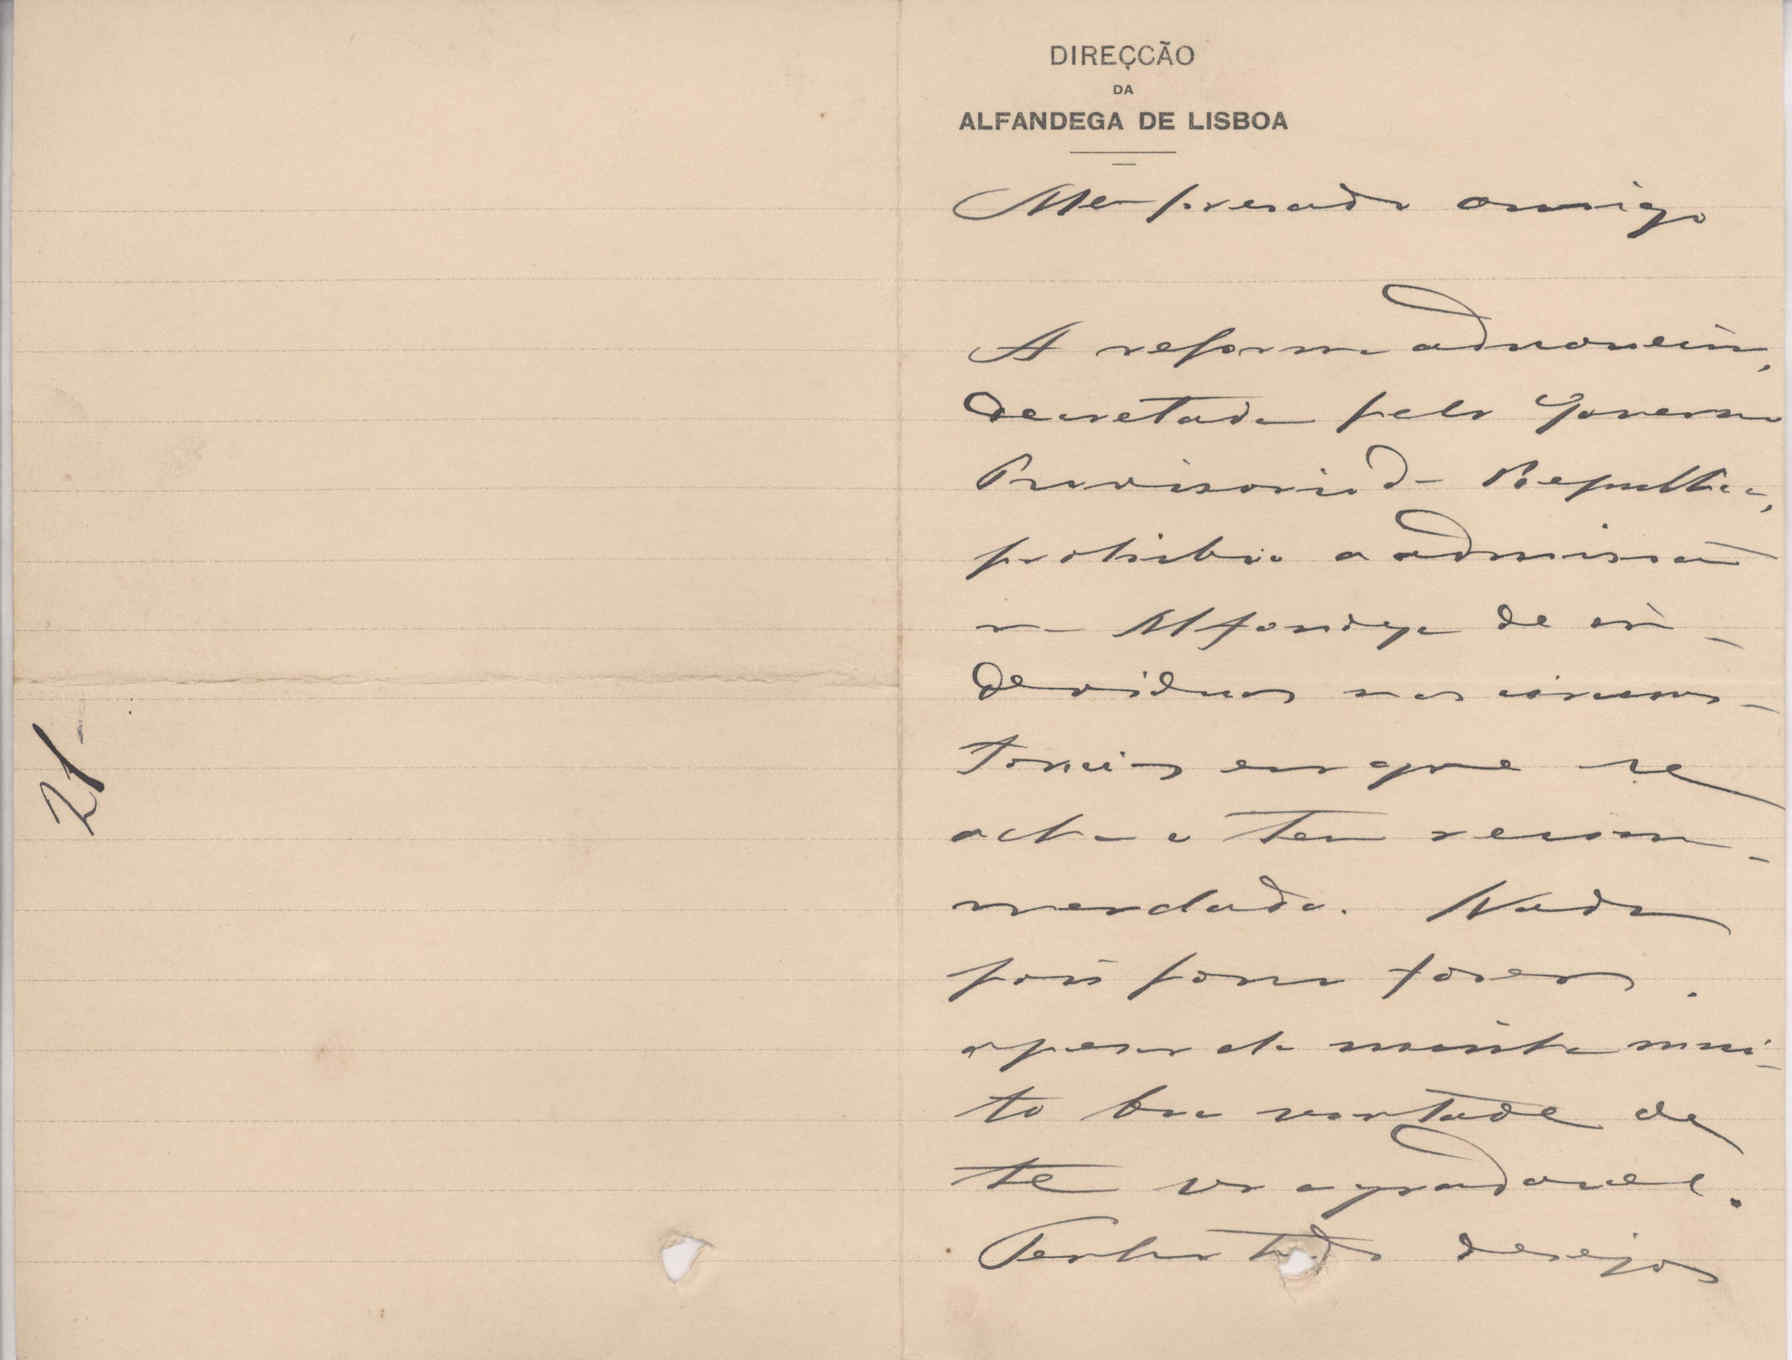 DIRECÇÃO
DA
ALFANDEGA DE LISBOA
Meu presado amigo
A reforma aduaneira,
decretada pelo Governo
Provisorio da Republica,
prohibiu a admissão
na Alfandega de in-
deviduos nas circums-
tancias em que se
acha o teu recom-
mendado. Nada
pois posso fazer
apesar da minha mui-
to boa vontade de
te ser agradavel.
Tenho tido desejos
21-